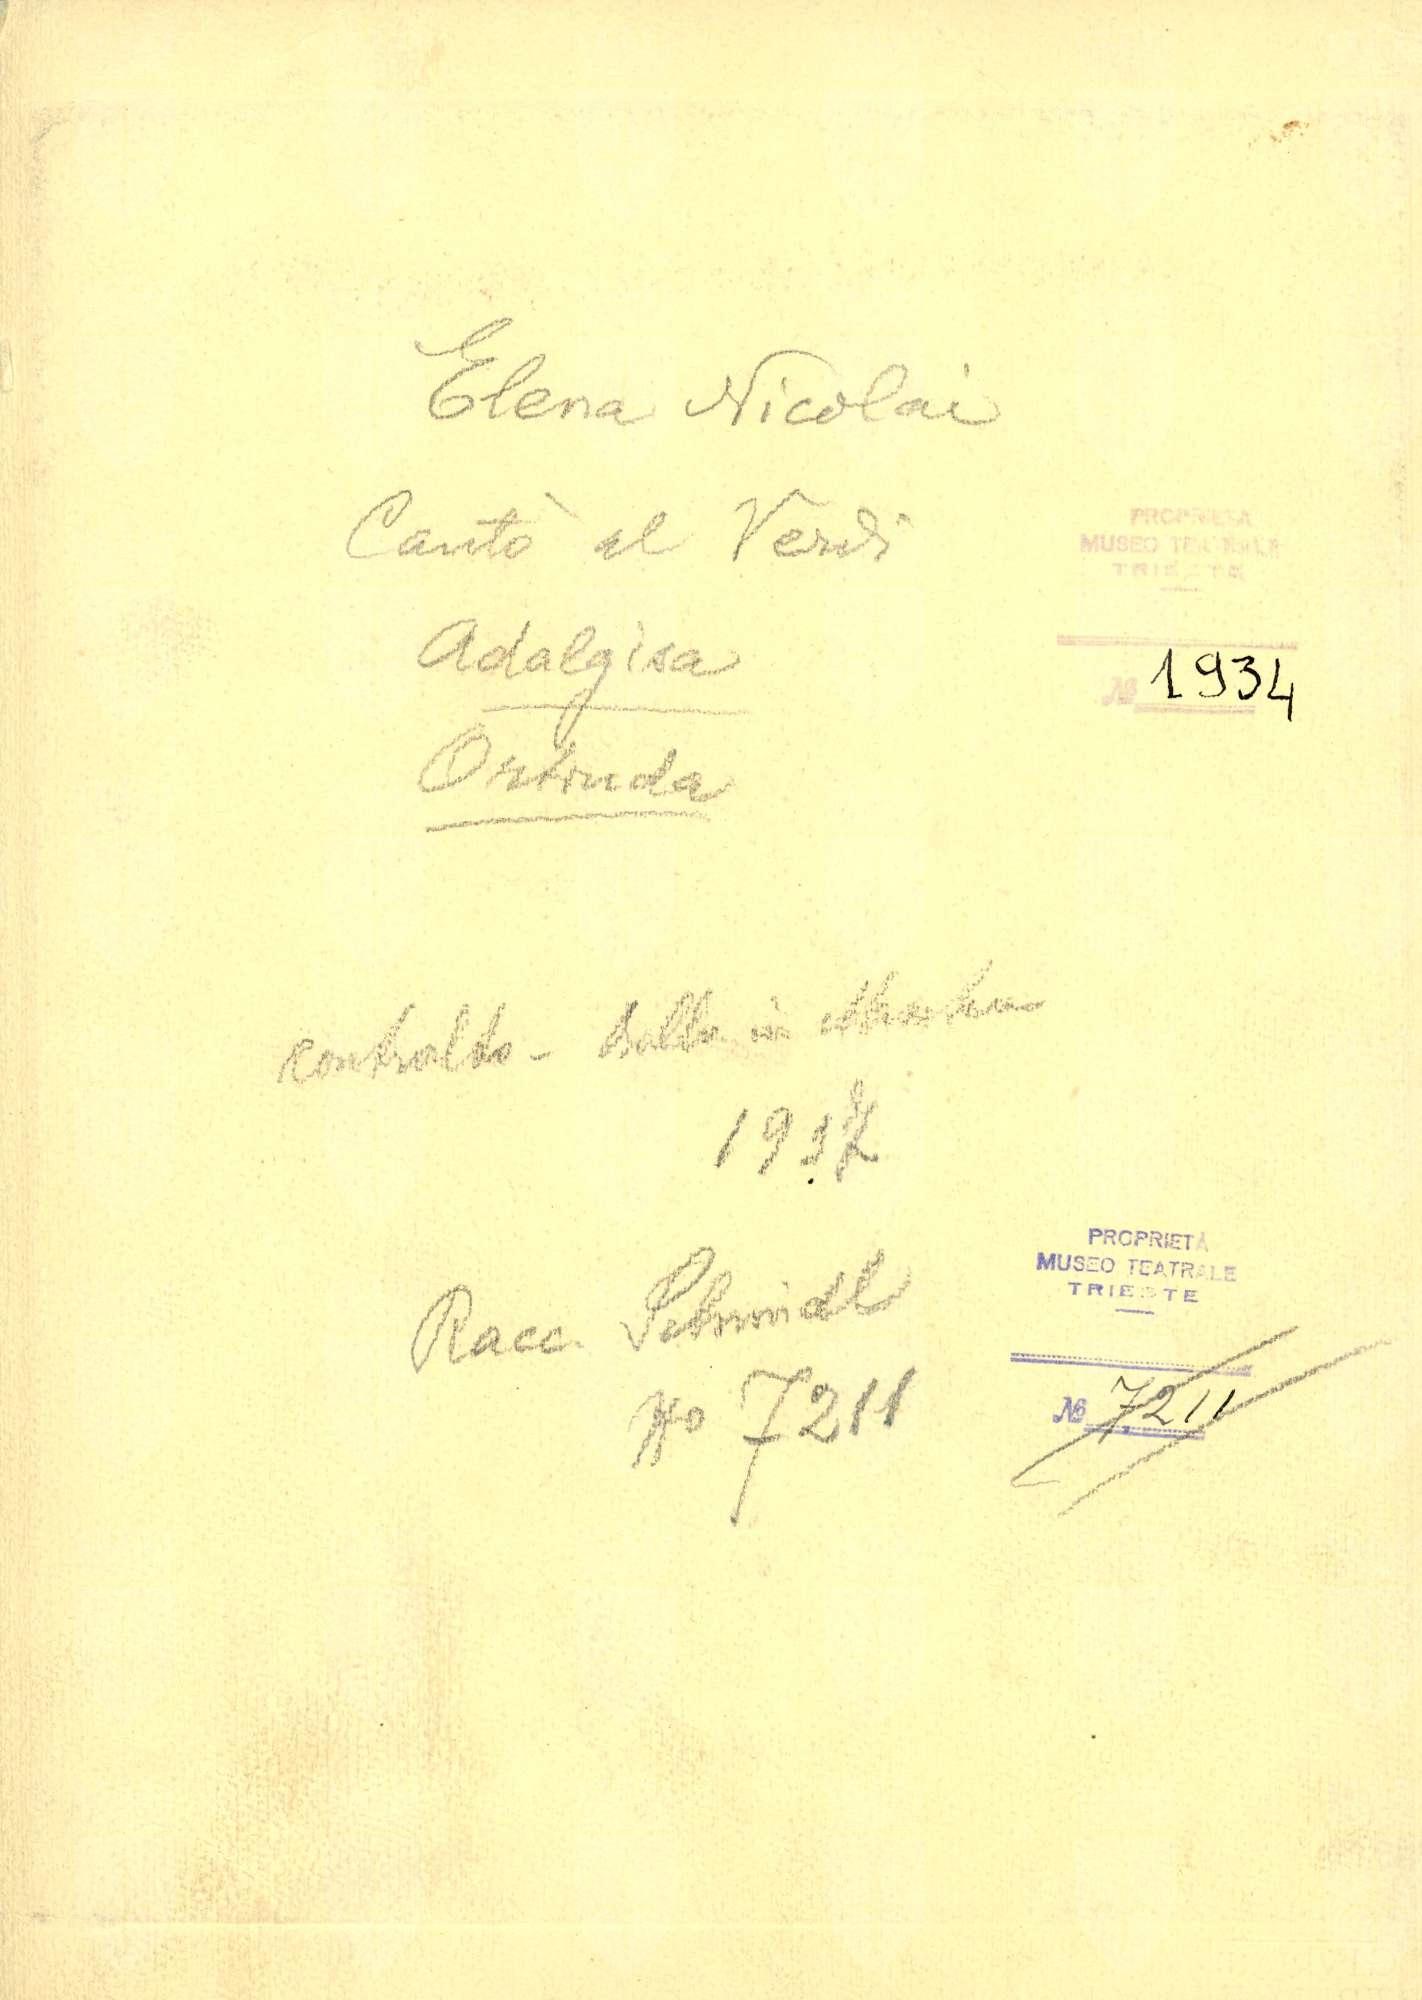 Elena Nicolai
Cantò al Verdi
Adalgisa
Ortruda
PROPRIETÀ
MUSEO TEATRALE
TRIESTE
№ 1934
contralto - ballo in maschera
1937
Racc. Schmidl
No 7211
PROPRIETÀ
MUSEO TEATRALE
TRIESTE
№ 7211